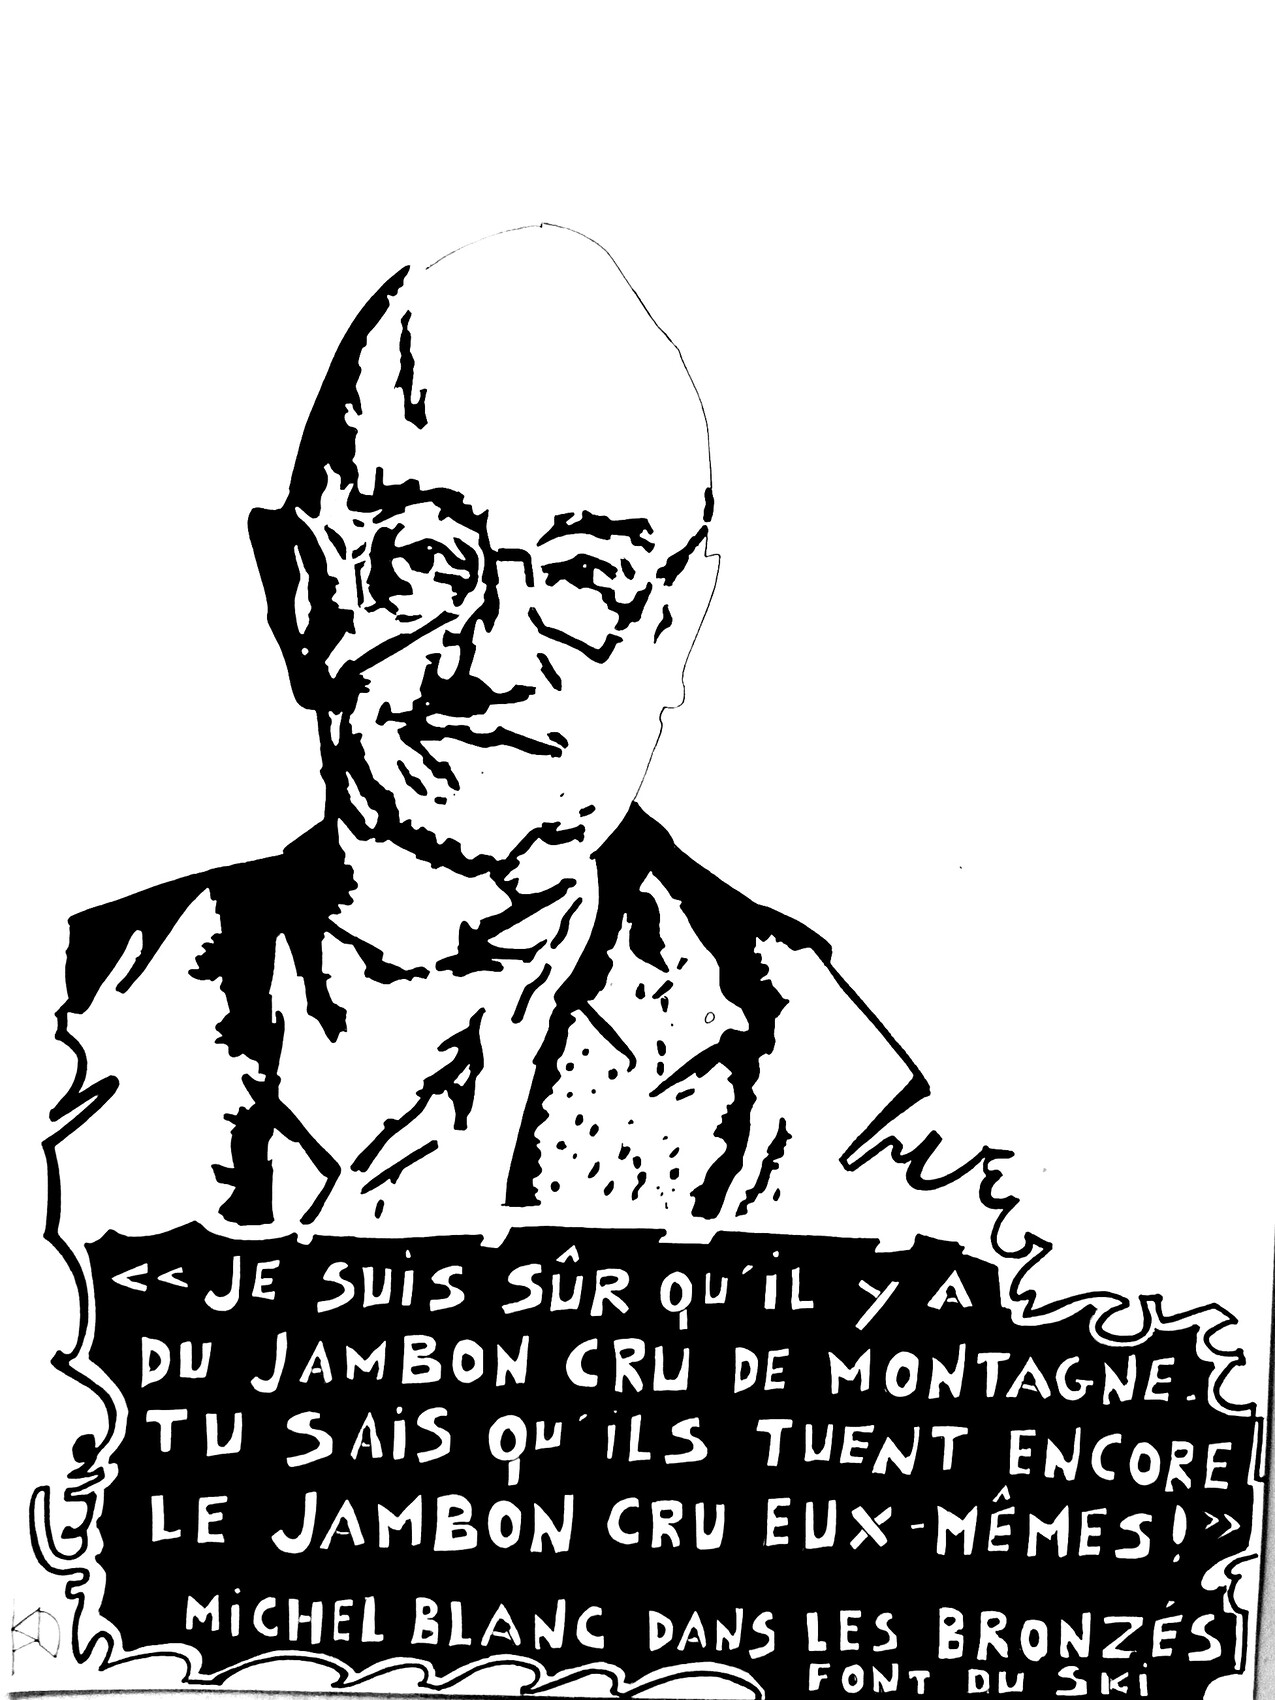 << JE SUIS SÛR QU'IL Y A
DU JAMBON CRU DE MONTAGNE.
TU SAIS QU'ILS TUENT ENCORE
LE JAMBON CRU EUX-MÊMES! >>
MICHEL BLANC DANS LES BRONZÉS
FONT DU SKI